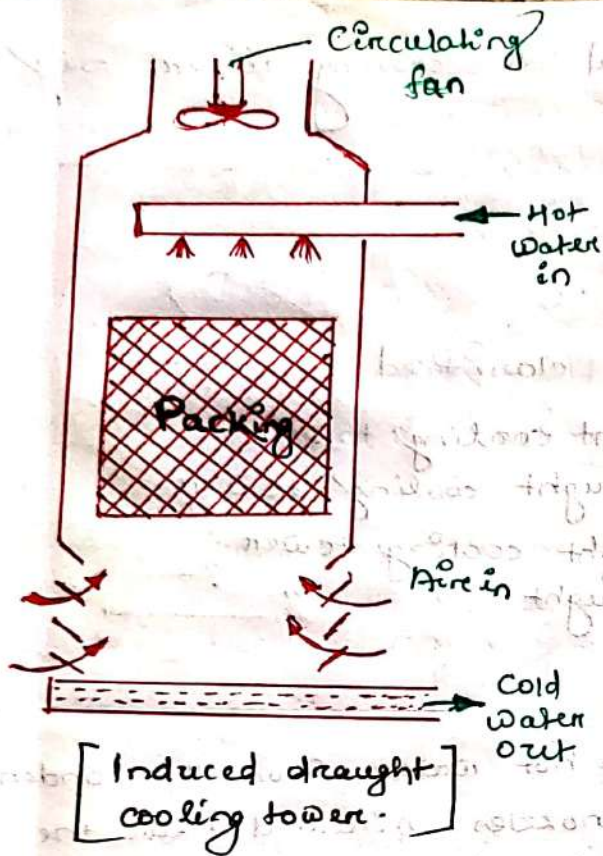 Circulating
fan
Hot
Water
in
Packing
Air in
Cold
Water
out
[Induced draught
cooling tower.]